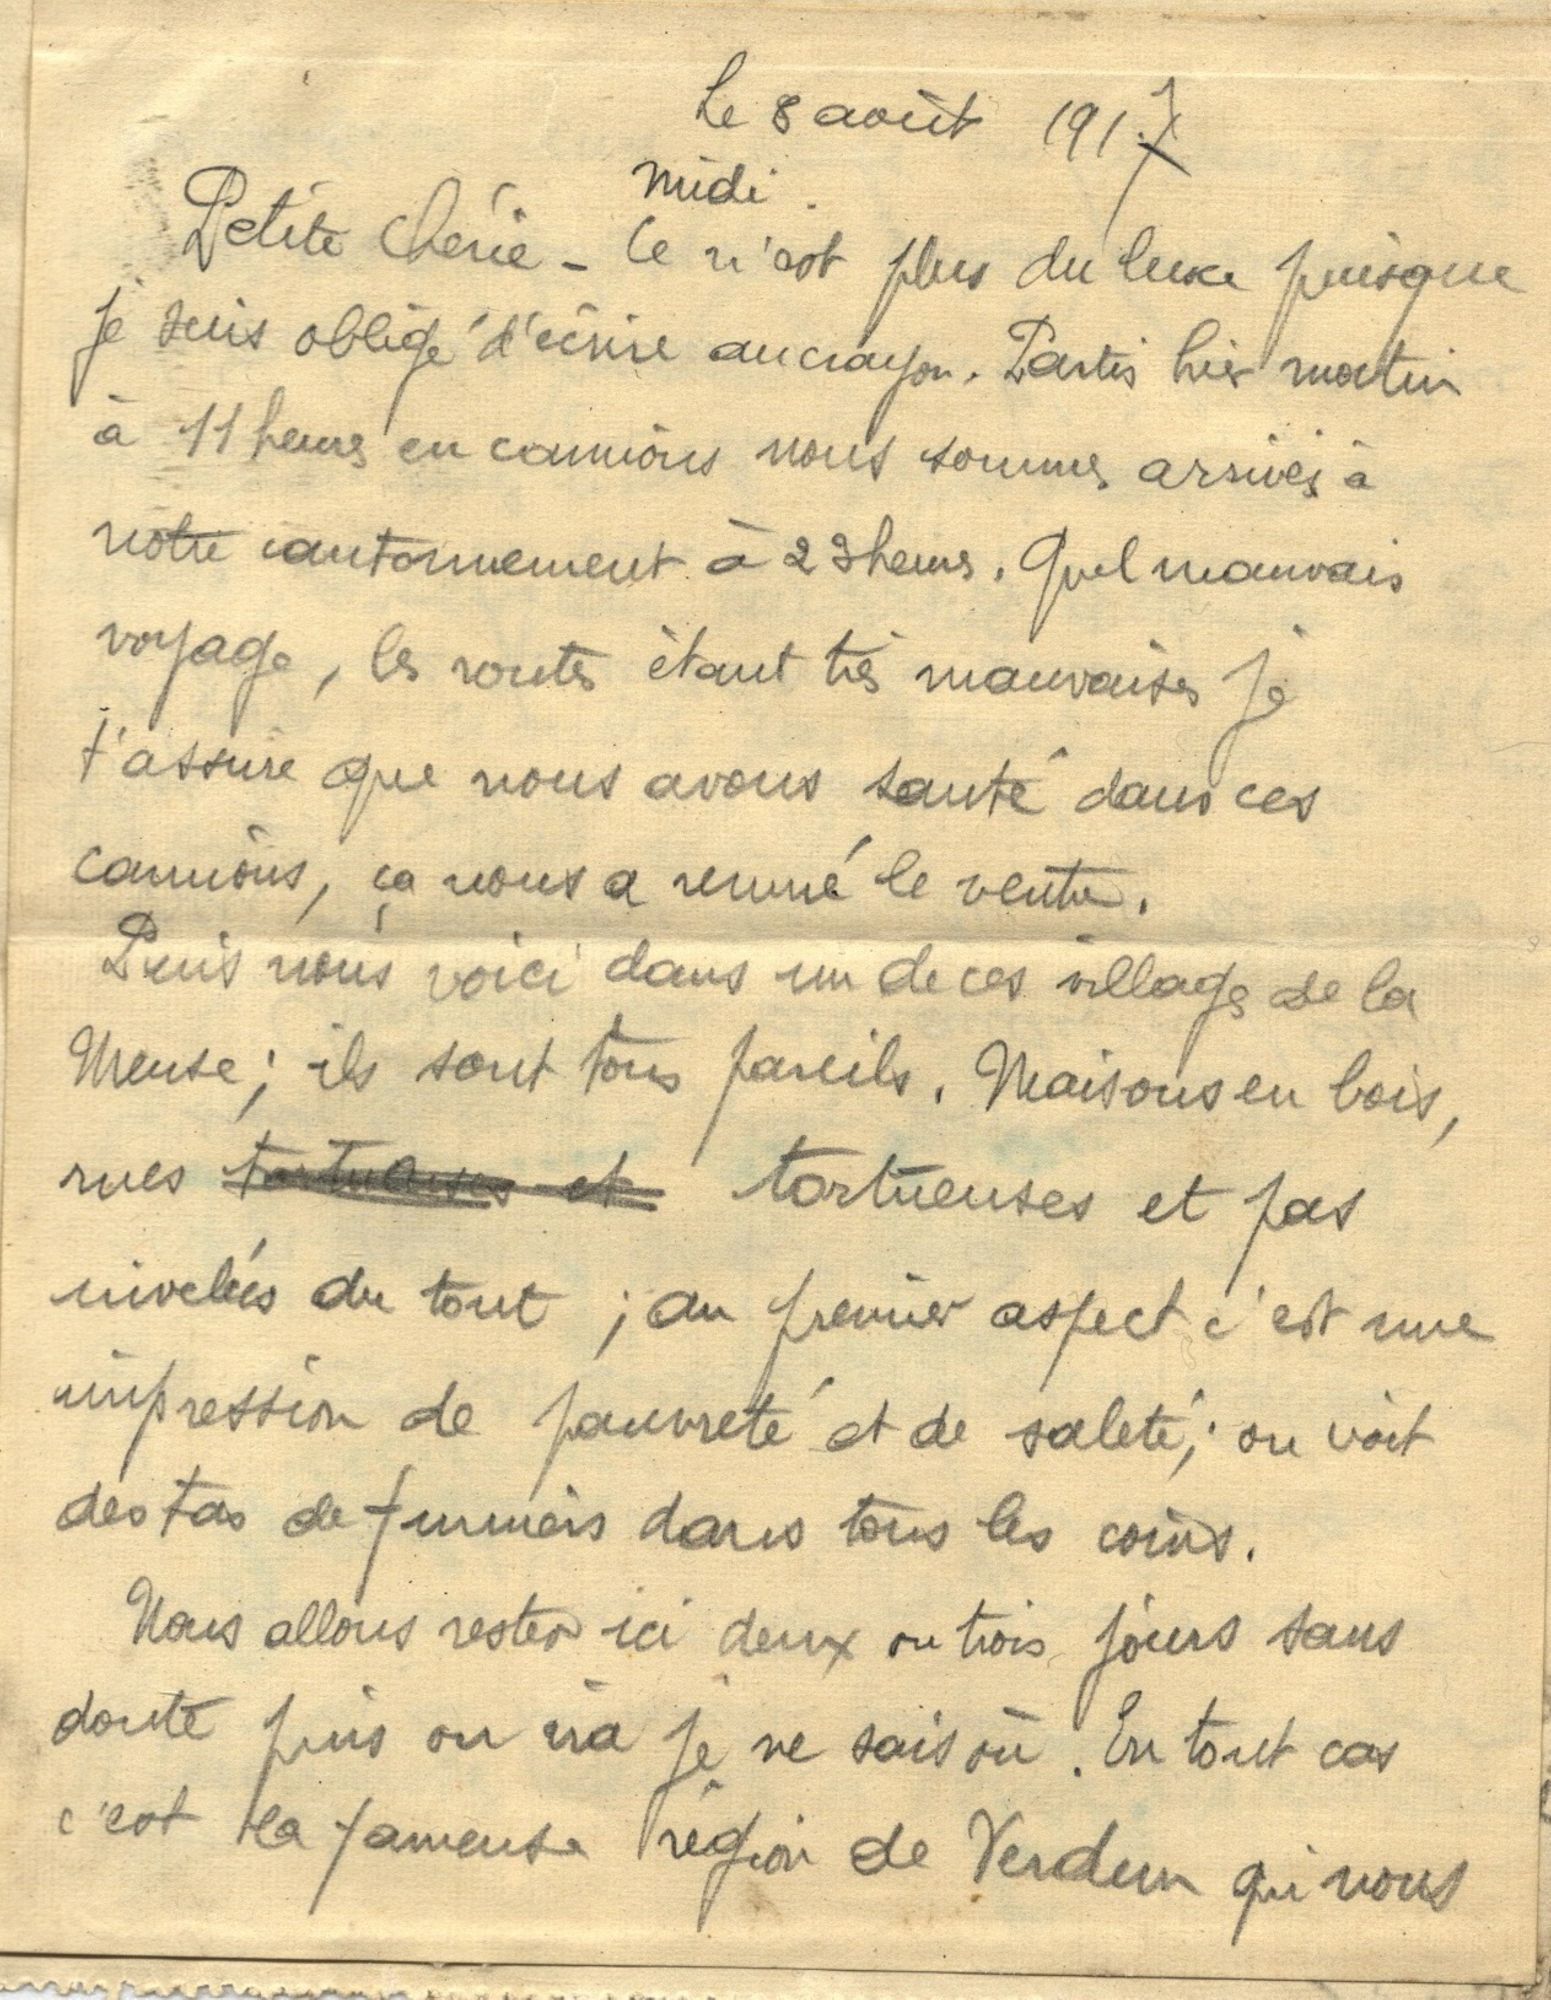 Le 8 août 1917
midi.
Petite chérie – Ce n'est plus du luxe puisque
je suis obligé d'écrire au crayon. Partis hier matin
à 11 heures en camions nous sommes arrivés à
notre cantonnement à 23 heures. Quel mauvais
voyage, les routes étant très mauvaises je
t'assure que nous avons sauté dans ces
camions, ça nous a remué le ventre.
Puis nous voici dans un de ces villages de la
Meuse ; ils sont tous pareils. Maisons en bois,
rues tortueuses et tortueuses et pas
nivelées du tout ; au premier aspect c'est une
impression de pauvreté et de saleté ; on voit
des tas de fumiers dans tous les coins.
Nous allons rester ici deux ou trois jours sans
doute puis on ira je ne sais où. En tout cas
c'est la fameuse région de Verdun qui nous